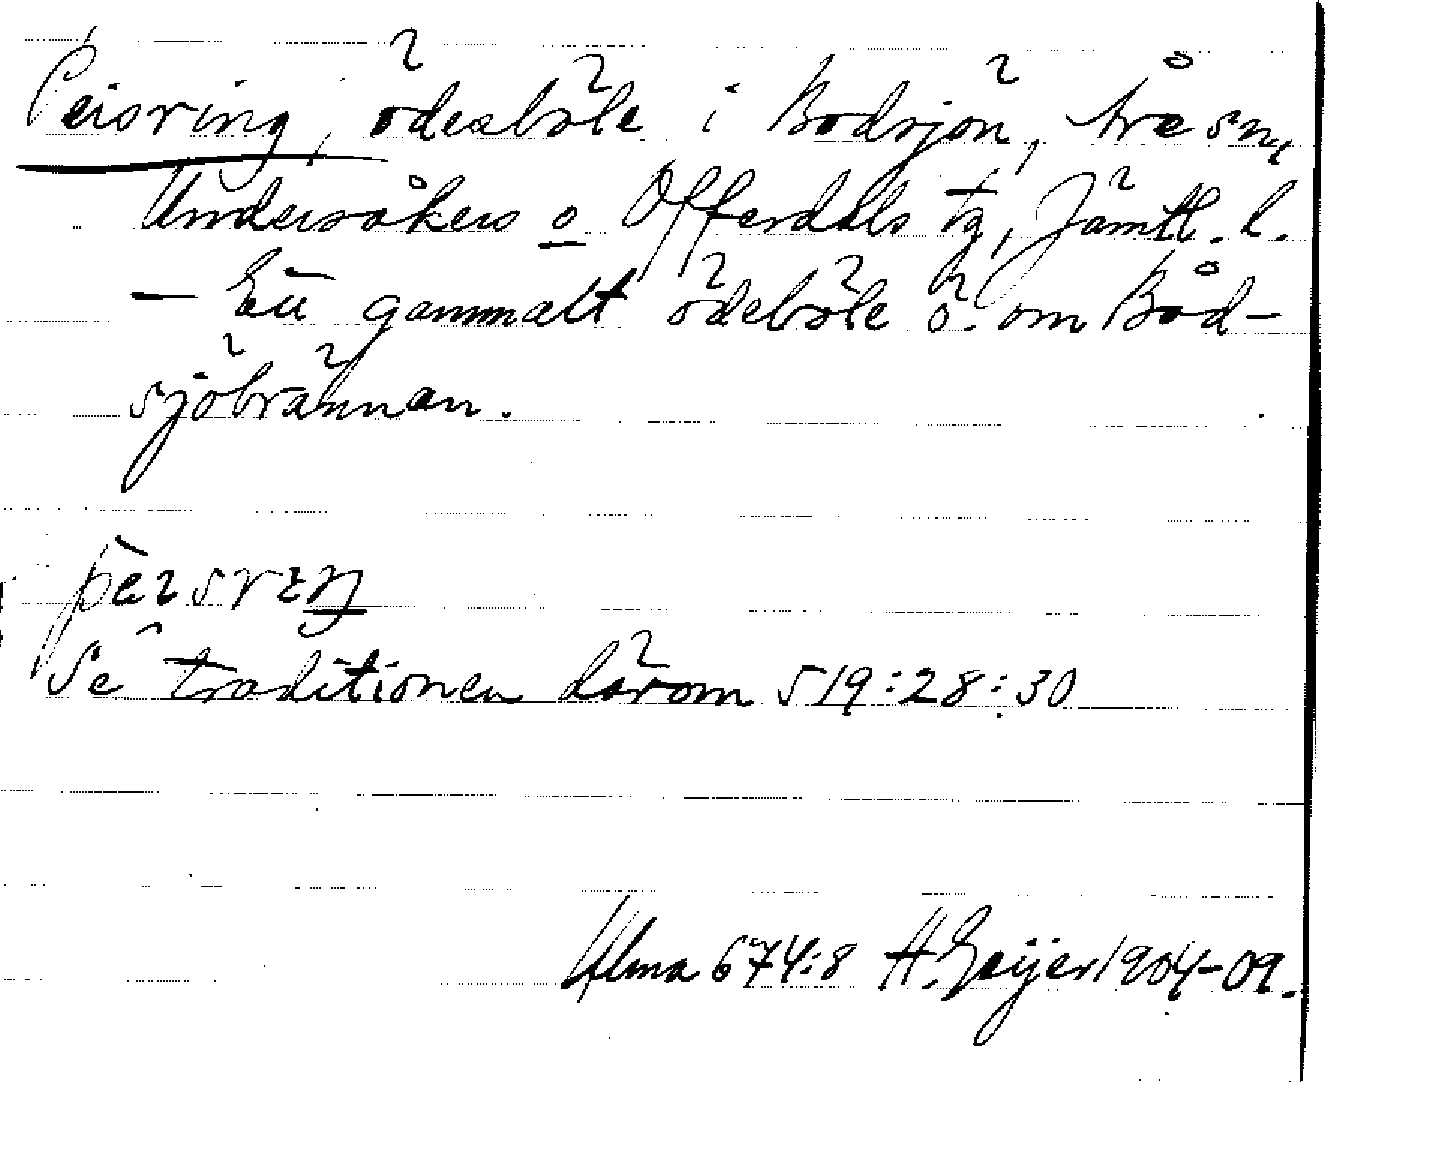 Peisring, ödesböle i Bodsjön, Åre sn,
Undersåkers o Offerdals tg, Jämtl. l.
– Ett gammalt ödeböle ö. om Bod-
sjöbrännan.
Se traditionen därom S 19:28:30
Ulma 674:8 H. Geijer 1904-09.